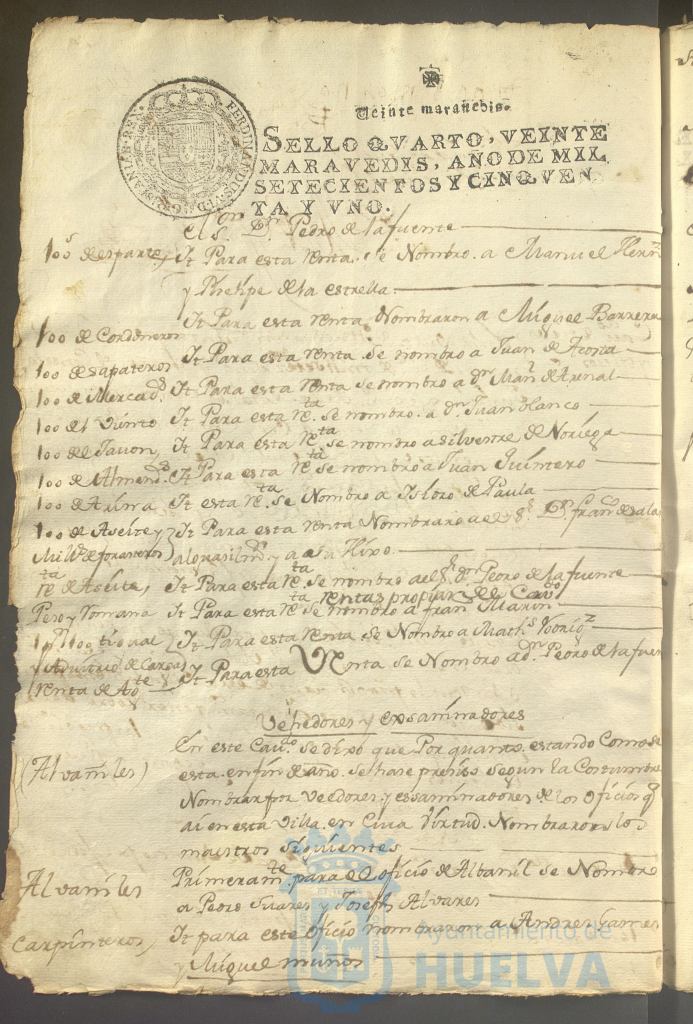 Veinte maravedis.
SELLO QVARTO, VEINTE
MARAVEDIS, AÑO DE MIL
SETECIENTOS Y CINQVEN
TA Y VNO.
FERDINANDUS VI D G HISPANIAR REX
el S. Dn Pedro de la fuente
100s de esparte, It Para esta Renta se Nombro a Manuel Hernz
y Phelipe de la estrella
100 de Cordoneros It Para esta renta Nombraron a Miguel Barrera
100 de sapateros It Para esta renta se nombro a Juan de Acosta
100 de Mercads It Para esta Renta se nombro a Dn Manl de Arenal
100 de l Viento It Para esta Reta se nombro a Dn Juan blanco
100 de l Javon, It Para esta Reta se nombro a silvestre de Noriega
100 de Almends It Para esta Reta se nombro a Juan Quintero
100 de Arina It esta Reta se Nombro a Isidro de Paula
100 de Aseite y It Para esta renta Nombraron a el Sr Dn franco de sala
Millo de forasteros) alguasil mr y a su Hixo
Reta de Aseite, It Para esta Reta se nombro a el Sr Dn Pedro de la fuente
Rentas propias de el Cavo
Peso y Romana It Para esta Reta se nombro a fran Marin
It Para esta Renta se Nombro a Maths Rodrigz
y Advitrio de Cargas
Renta de It Para esta Renta se Nombro a Dn Pedro de la fuen
Vehedores y exsaminadores
(Alvañiles) En este Cavo se dixo que Por quanto estando Como se
esta en fin de año se hase presiso segun la Costumbre
Nombrar por Veedores y essaminadores de los oficios q
ai en esta Villa, en Cuia Virtud Nombraron los
maestros siguientes
Alvañiles Primeramte para el oficio de Albañil se Nombro
a Pedro Suares y Joseph Alvares
Carpinteros, It para este oficio nombraron a Andres Games
y Miguel muños
Ayuntamiento de
HUELVA